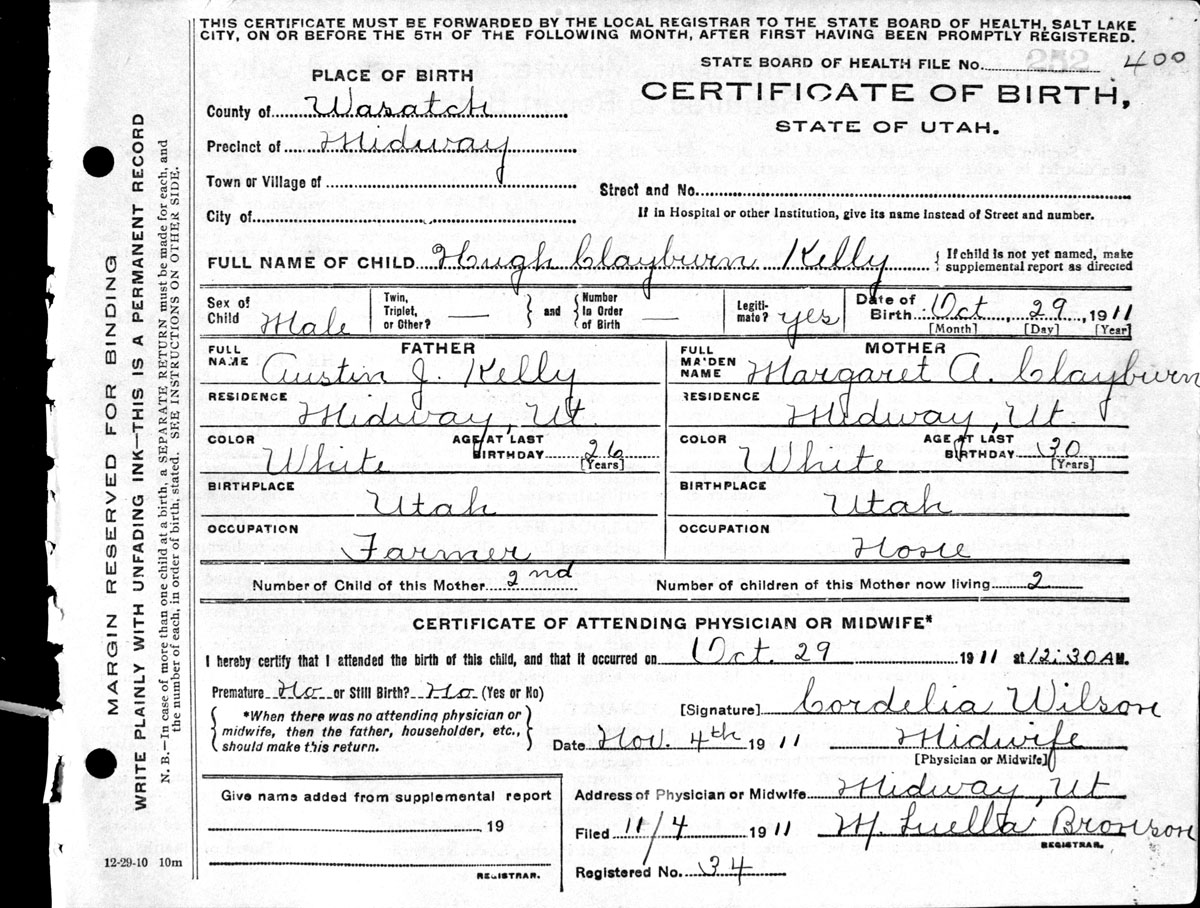 THIS CERTIFICATE MUST BE FORWARDED BY THE LOCAL REGISTRAR TO THE STATE BOARD OF HEALTH, SALT LAKE
CITY, ON OR BEFORE THE 5TH OF THE FOLLOWING MONTH, AFTER FIRST HAVING BEEN PROMPTLY REGISTERED.
STATE BOARD OF HEALTH FILE No. 400
PLACE OF BIRTH
CERTIFICATE OF BIRTH,
STATE OF UTAH.
County of Wasatch
Precinct of Midway
Town or Village of
Street and No.
City of
If in Hospital or other Institution, give its name instead of Street and number.
FULL NAME OF CHILD Hugh Clayburn Kelly { If child is not yet named, make supplemental report as directed
Sex of Child Male Twin, Triplet, or Other? — } and { Number In Order of Birth — Legiti-mate? yes Date of Birth Oct 29 1911
[Month] [Day] [Year]
FATHER MOTHER
FULL NAME Austin J. Kelly FULL MAIDEN NAME Margaret A. Clayburn
RESIDENCE Midway, Ut. RESIDENCE Midway, Ut.
COLOR White AGE AT LAST BIRTHDAY 26 [Years] COLOR White AGE AT LAST BIRTHDAY 30 [Years]
BIRTHPLACE Utah BIRTHPLACE Utah
OCCUPATION Farmer OCCUPATION
Number of Child of this Mother 2nd Number of children of this Mother now living 2
CERTIFICATE OF ATTENDING PHYSICIAN OR MIDWIFE*
I hereby certify that I attended the birth of this child, and that it occurred on Oct. 29 1911 at 12:30 A.M.
Premature No or Still Birth? No (Yes or No)
*When there was no attending physician or
midwife, then the father, householder, etc.,
should make this return.
[Signature] Cordelia Wilson
Date Nov. 4th 1911 Midwife
[Physician or Midwife]
Give name added from supplemental report
19
REGISTRAR.
Address of Physician or Midwife Midway, Ut
Filed 11/4 1911 M. Luella Bronson
REGISTRAR.
Registered No. 34
12-29-10 10m
MARGIN RESERVED FOR BINDING
WRITE PLAINLY WITH UNFADING INK—THIS IS A PERMANENT RECORD
N. B.—In case of more than one child at a birth, a SEPARATE RETURN must be made for each, and
the number of each, in order of birth, stated. SEE INSTRUCTIONS ON OTHER SIDE.